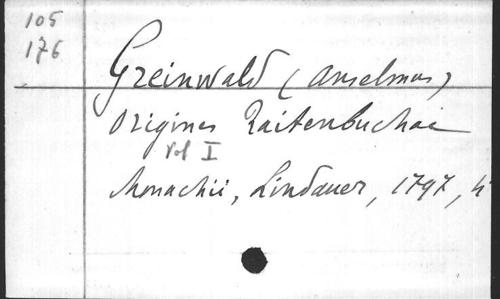 105
176
Greinwald (Anselmus)
Origines Raitenbuchae
Vol I
Monachii, Lindauer, 1797, 4